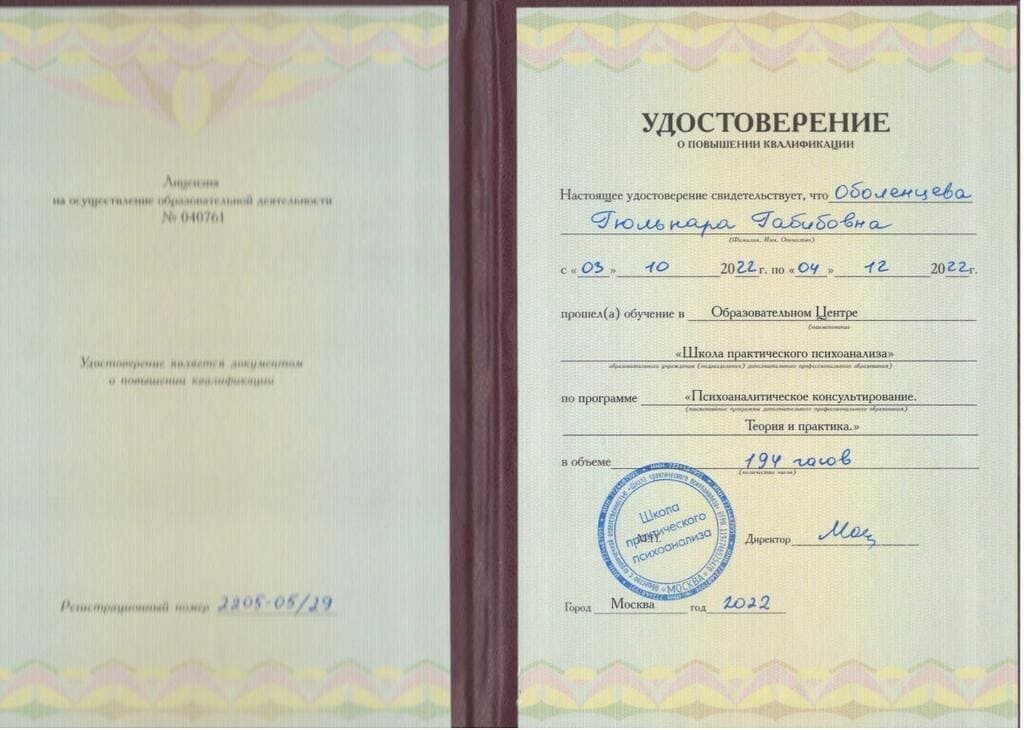 Лицензия
на осуществление образовательной деятельности
№ 040761
Удостоверение является документом
о повышении квалификации
Регистрационный номер 2205-05/29
УДОСТОВЕРЕНИЕ
О ПОВЫШЕНИИ КВАЛИФИКАЦИИ
Настоящее удостоверение свидетельствует, что Оболенцева
Гюльнара Габибовна
(Фамилия, Имя, Отчество)
с « 03 » 10 2022 г. по « 04 » 12 2022 г.
прошел(а) обучение в Образовательном Центре
(наименование
«Школа практического психоанализа»
образовательного учреждения (подразделения) дополнительного профессионального образования)
по программе «Психоаналитическое консультирование.
(наименование программы дополнительного профессионального образования)
Теория и практика.»
в объеме 194 часов
(количество часов)
Школа
практического
психоанализа
«МОСКВА»
М.П.
Директор
Город Москва год 2022